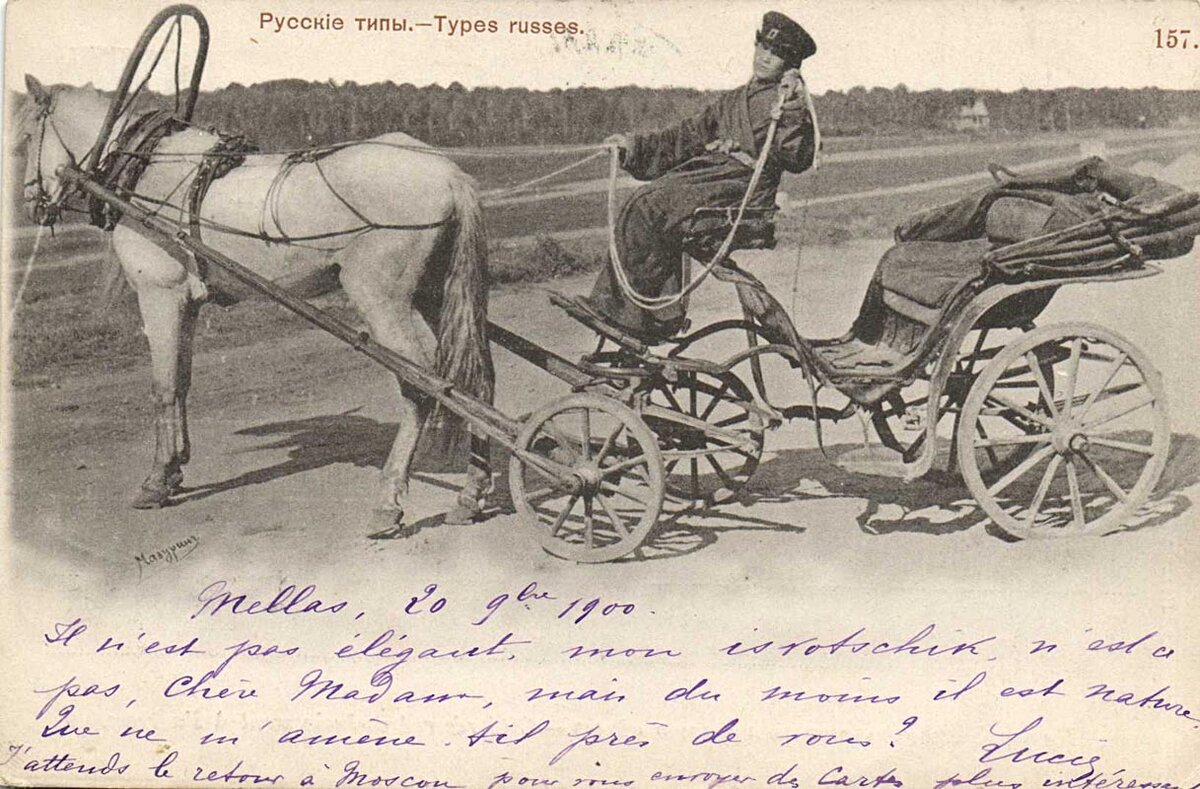 Русскіе типы.—Types russes.
157.
Мазуринъ
Mellas, 20 9bre 1900.
Il n'est pas élégant, mon isvotschik, n'est ce
pas, Chère Madame, mais du moins il est nature.
Que ne m'amène-t-il près de vous?
Lucie
J'attends le retour à Moscou pour vous envoyer des Cartes plus intéressa